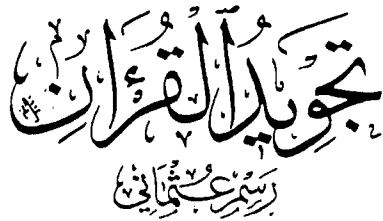 تَجْوِيدُ ٱلْقُرْءَانِ
بِرَسْمِ عُثْمَانِي